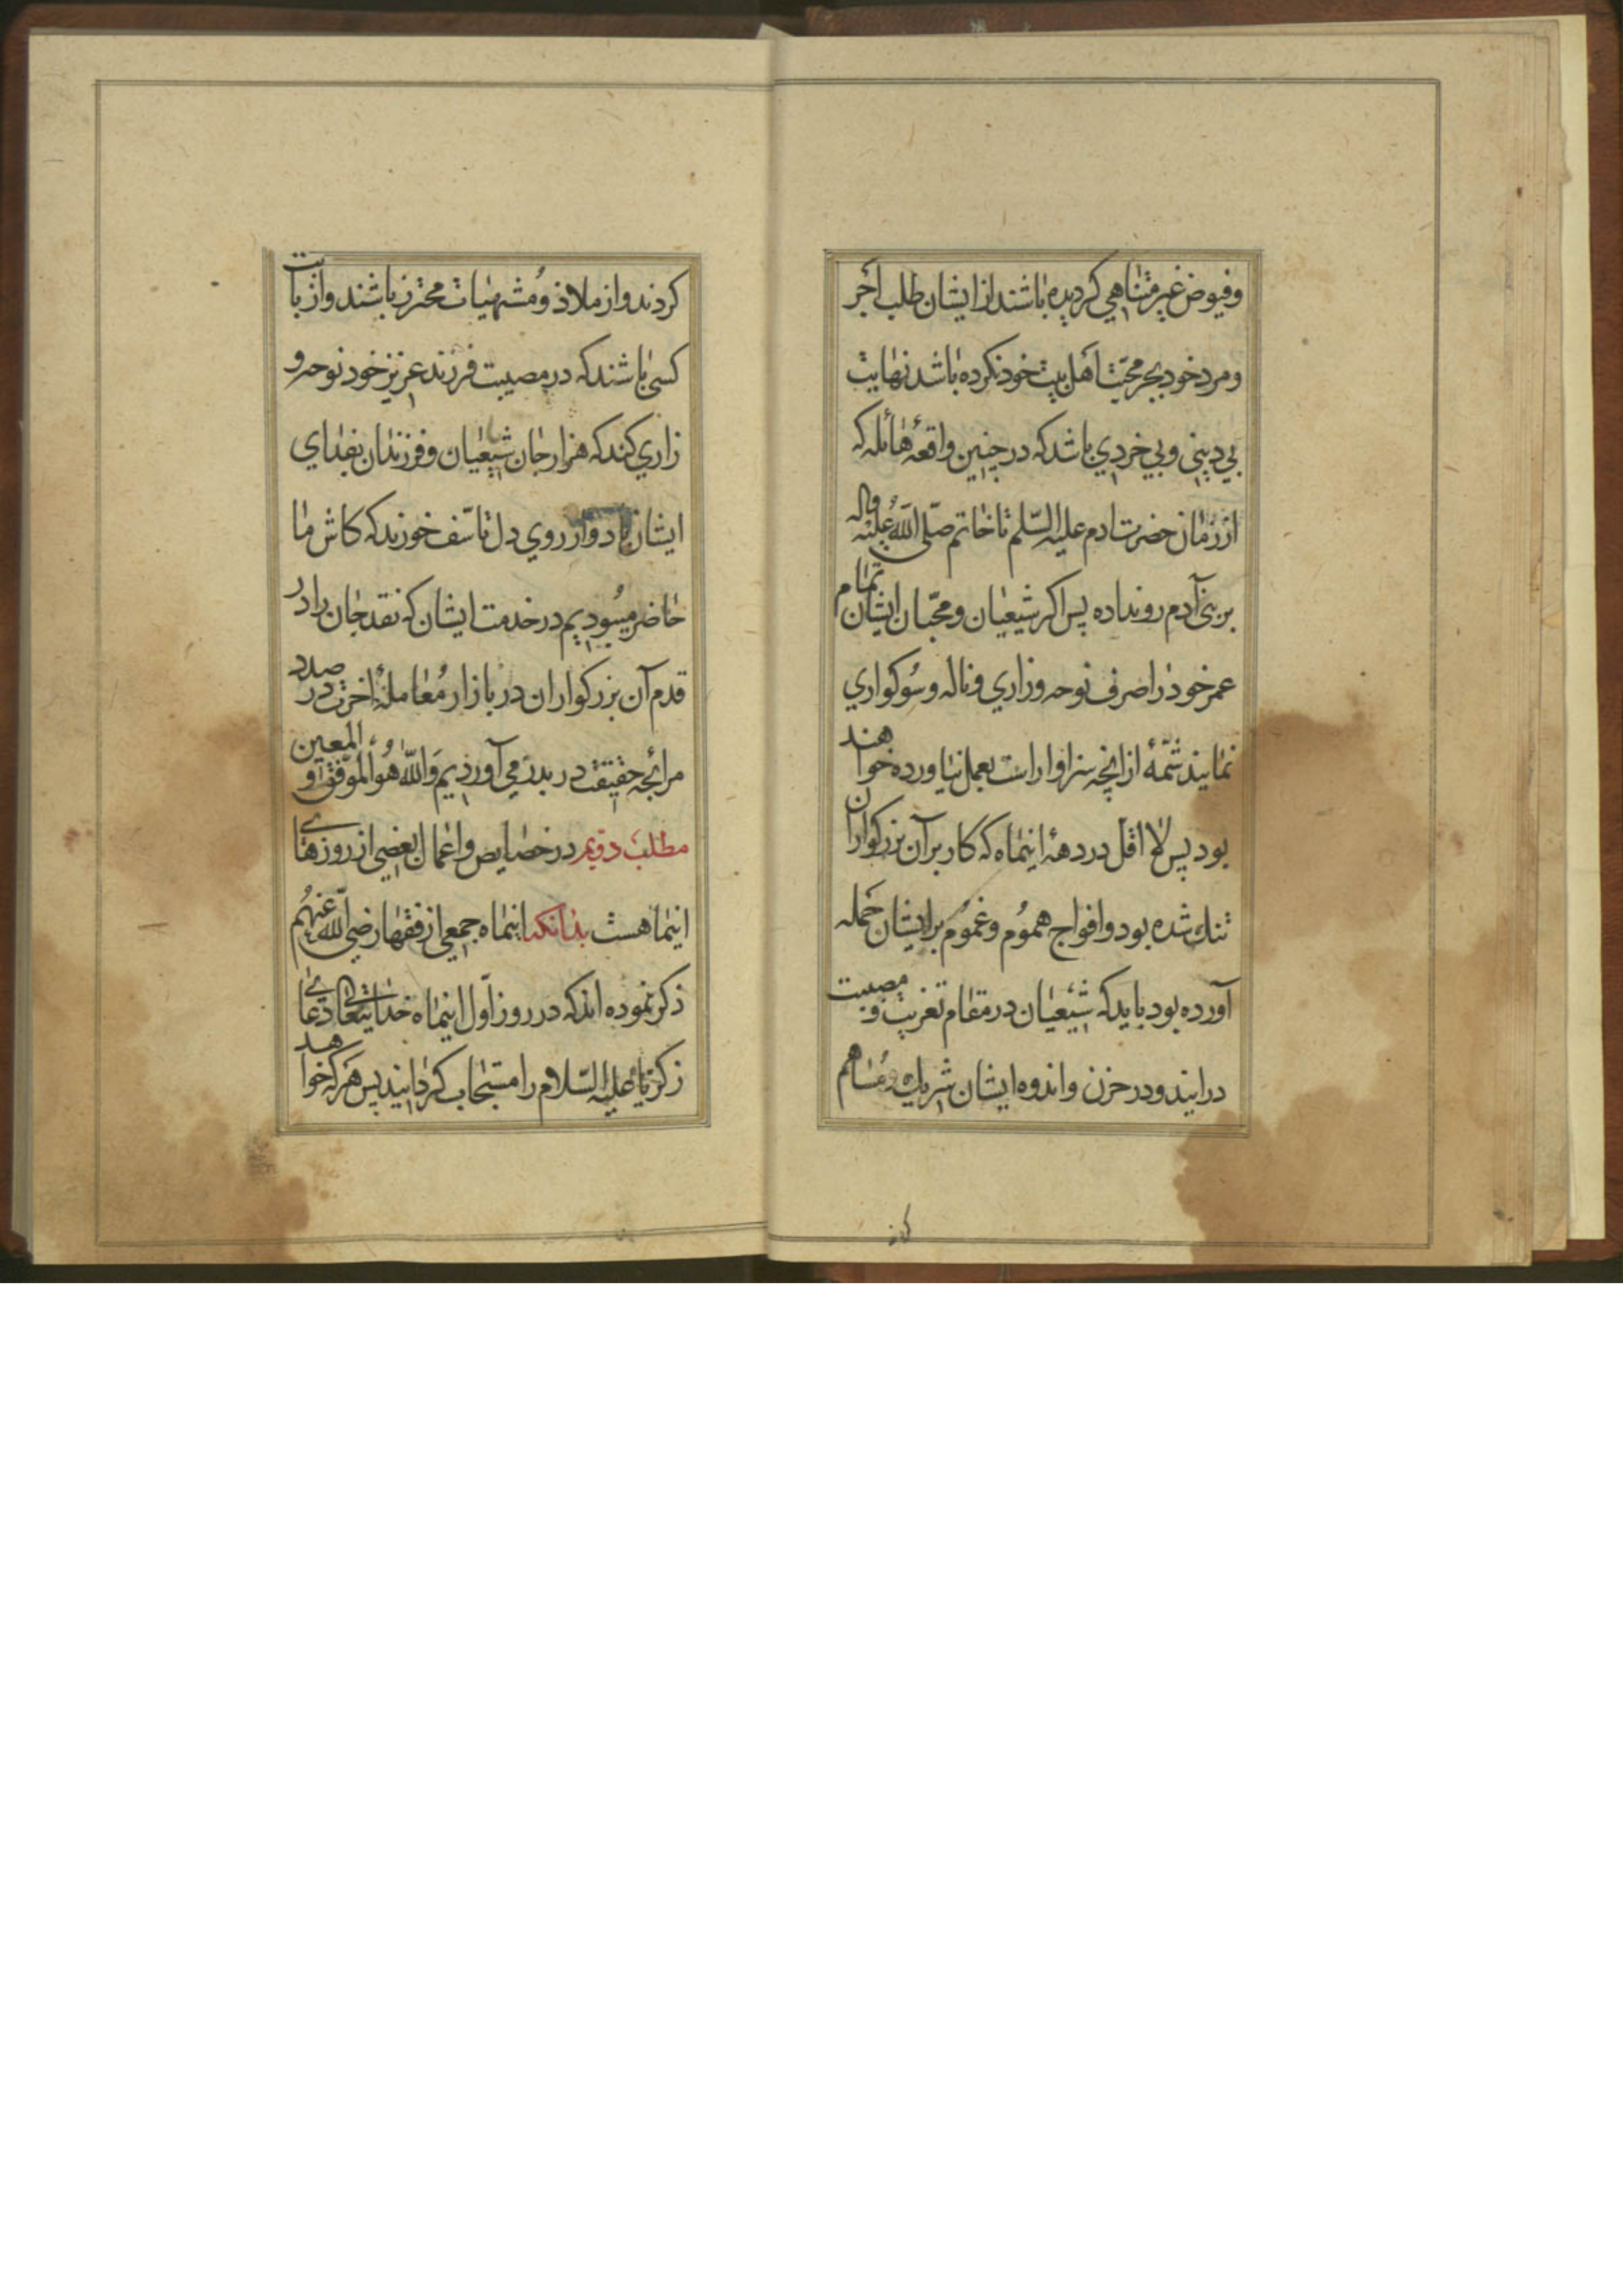 وفیوض غیر متناهي کردیده باشند از ایشان طلب اجر
ومرد خود بجر محبت اهل بیت خود نکرده باشد نهایت
بي دیني وبي خردي باشد که در چنین واقعۀ هائله که
از زمان حضرت ادم علیه السلم تا خاتم صلی الله علیه واله
بر بني آدم رو نداده پس اکر شیعیان ومحبان ایشان تمام
عمر خود را صرف نوحه وزاري وناله وسوکواري
نمایند شمۀ از انچه سزاوار است بعمل نیاورده خواهند
بود پس لا اقل در دهۀ اینماه که کار بر آن بزرکواران
تنك شده بود وافواج هموم وغموم بر ایشان حمله
آورده بود باید که شیعیان در مقام تعزیت ومصیبت
در ایند ودر حزن واندوه ایشان شریك ومساهم
کردند واز ملاذ ومشتهیات محترز باشند واز بابت
کسی باشند که در مصیبت فرزند عزیز خود نوحه و
زاري کند که هزار جان شیعیان وفرزندان بفداي
ایشان باد واز روي دل تاسف خورند که کاش ما
حاضر میبودیم در خدمت ایشان که نقد جان را در
قدم آن بزرکواران در بازار معاملۀ اخرت در صدد
مرابحه حقیقت در بدر مي آوردیم والله هو الموفق والمعین
مطلب دویم در خصایص واعمال بعضي از روزهاي
اینماهست بدانکه اینماه جمعي از فقها رضي الله عنهم
ذکر نموده اند که در روز اول اینماه خدایتعالی دعاي
زکریا علیه السلام را مستجاب کردانید پس هر که خواهد